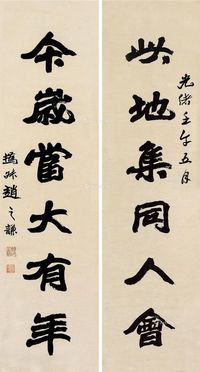 光緒壬午五月
此地集同人會
今歲當大有年
撝叔趙之謙